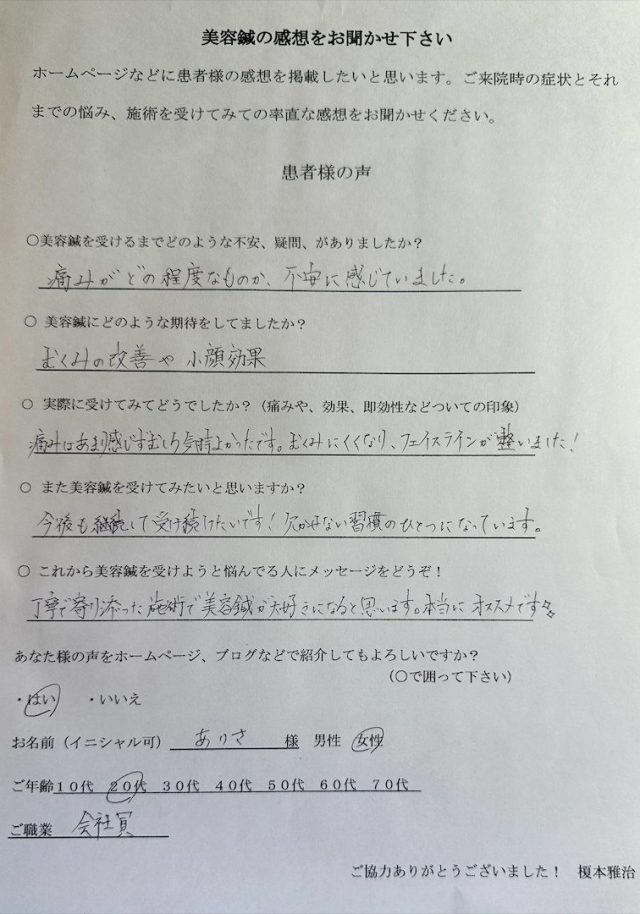 美容鍼の感想をお聞かせ下さい
ホームページなどに患者様の感想を掲載したいと思います。ご来院時の症状とそれ
までの悩み、施術を受けてみての率直な感想をお聞かせください。
患者様の声
○美容鍼を受けるまでどのような不安、疑問、がありましたか？
痛みがどの程度なものか、不安に感じていました。
○ 美容鍼にどのような期待をしてましたか？
むくみの改善や小顔効果
○ 実際に受けてみてどうでしたか？（痛みや、効果、即効性などついての印象）
痛みはあまり感じずむしろ気持よかったです。むくみにくくなり、フェイスラインが整いました！
○ また美容鍼を受けてみたいと思いますか？
今後も継続して受け続けたいです！欠かせない習慣のひとつになっています。
○ これから美容鍼を受けようと悩んでる人にメッセージをどうぞ！
丁寧で寄り添った施術で美容鍼が大好きになると思います。本当にオススメです
あなた様の声をホームページ、ブログなどで紹介してもよろしいですか？
（○で囲って下さい）
・はい ・いいえ
お名前（イニシャル可） ありさ 様 男性 女性
ご年齢１０代 ２０代 ３０代 ４０代 ５０代 ６０代 ７０代
ご職業 会社員
ご協力ありがとうございました！ 榎本雅治